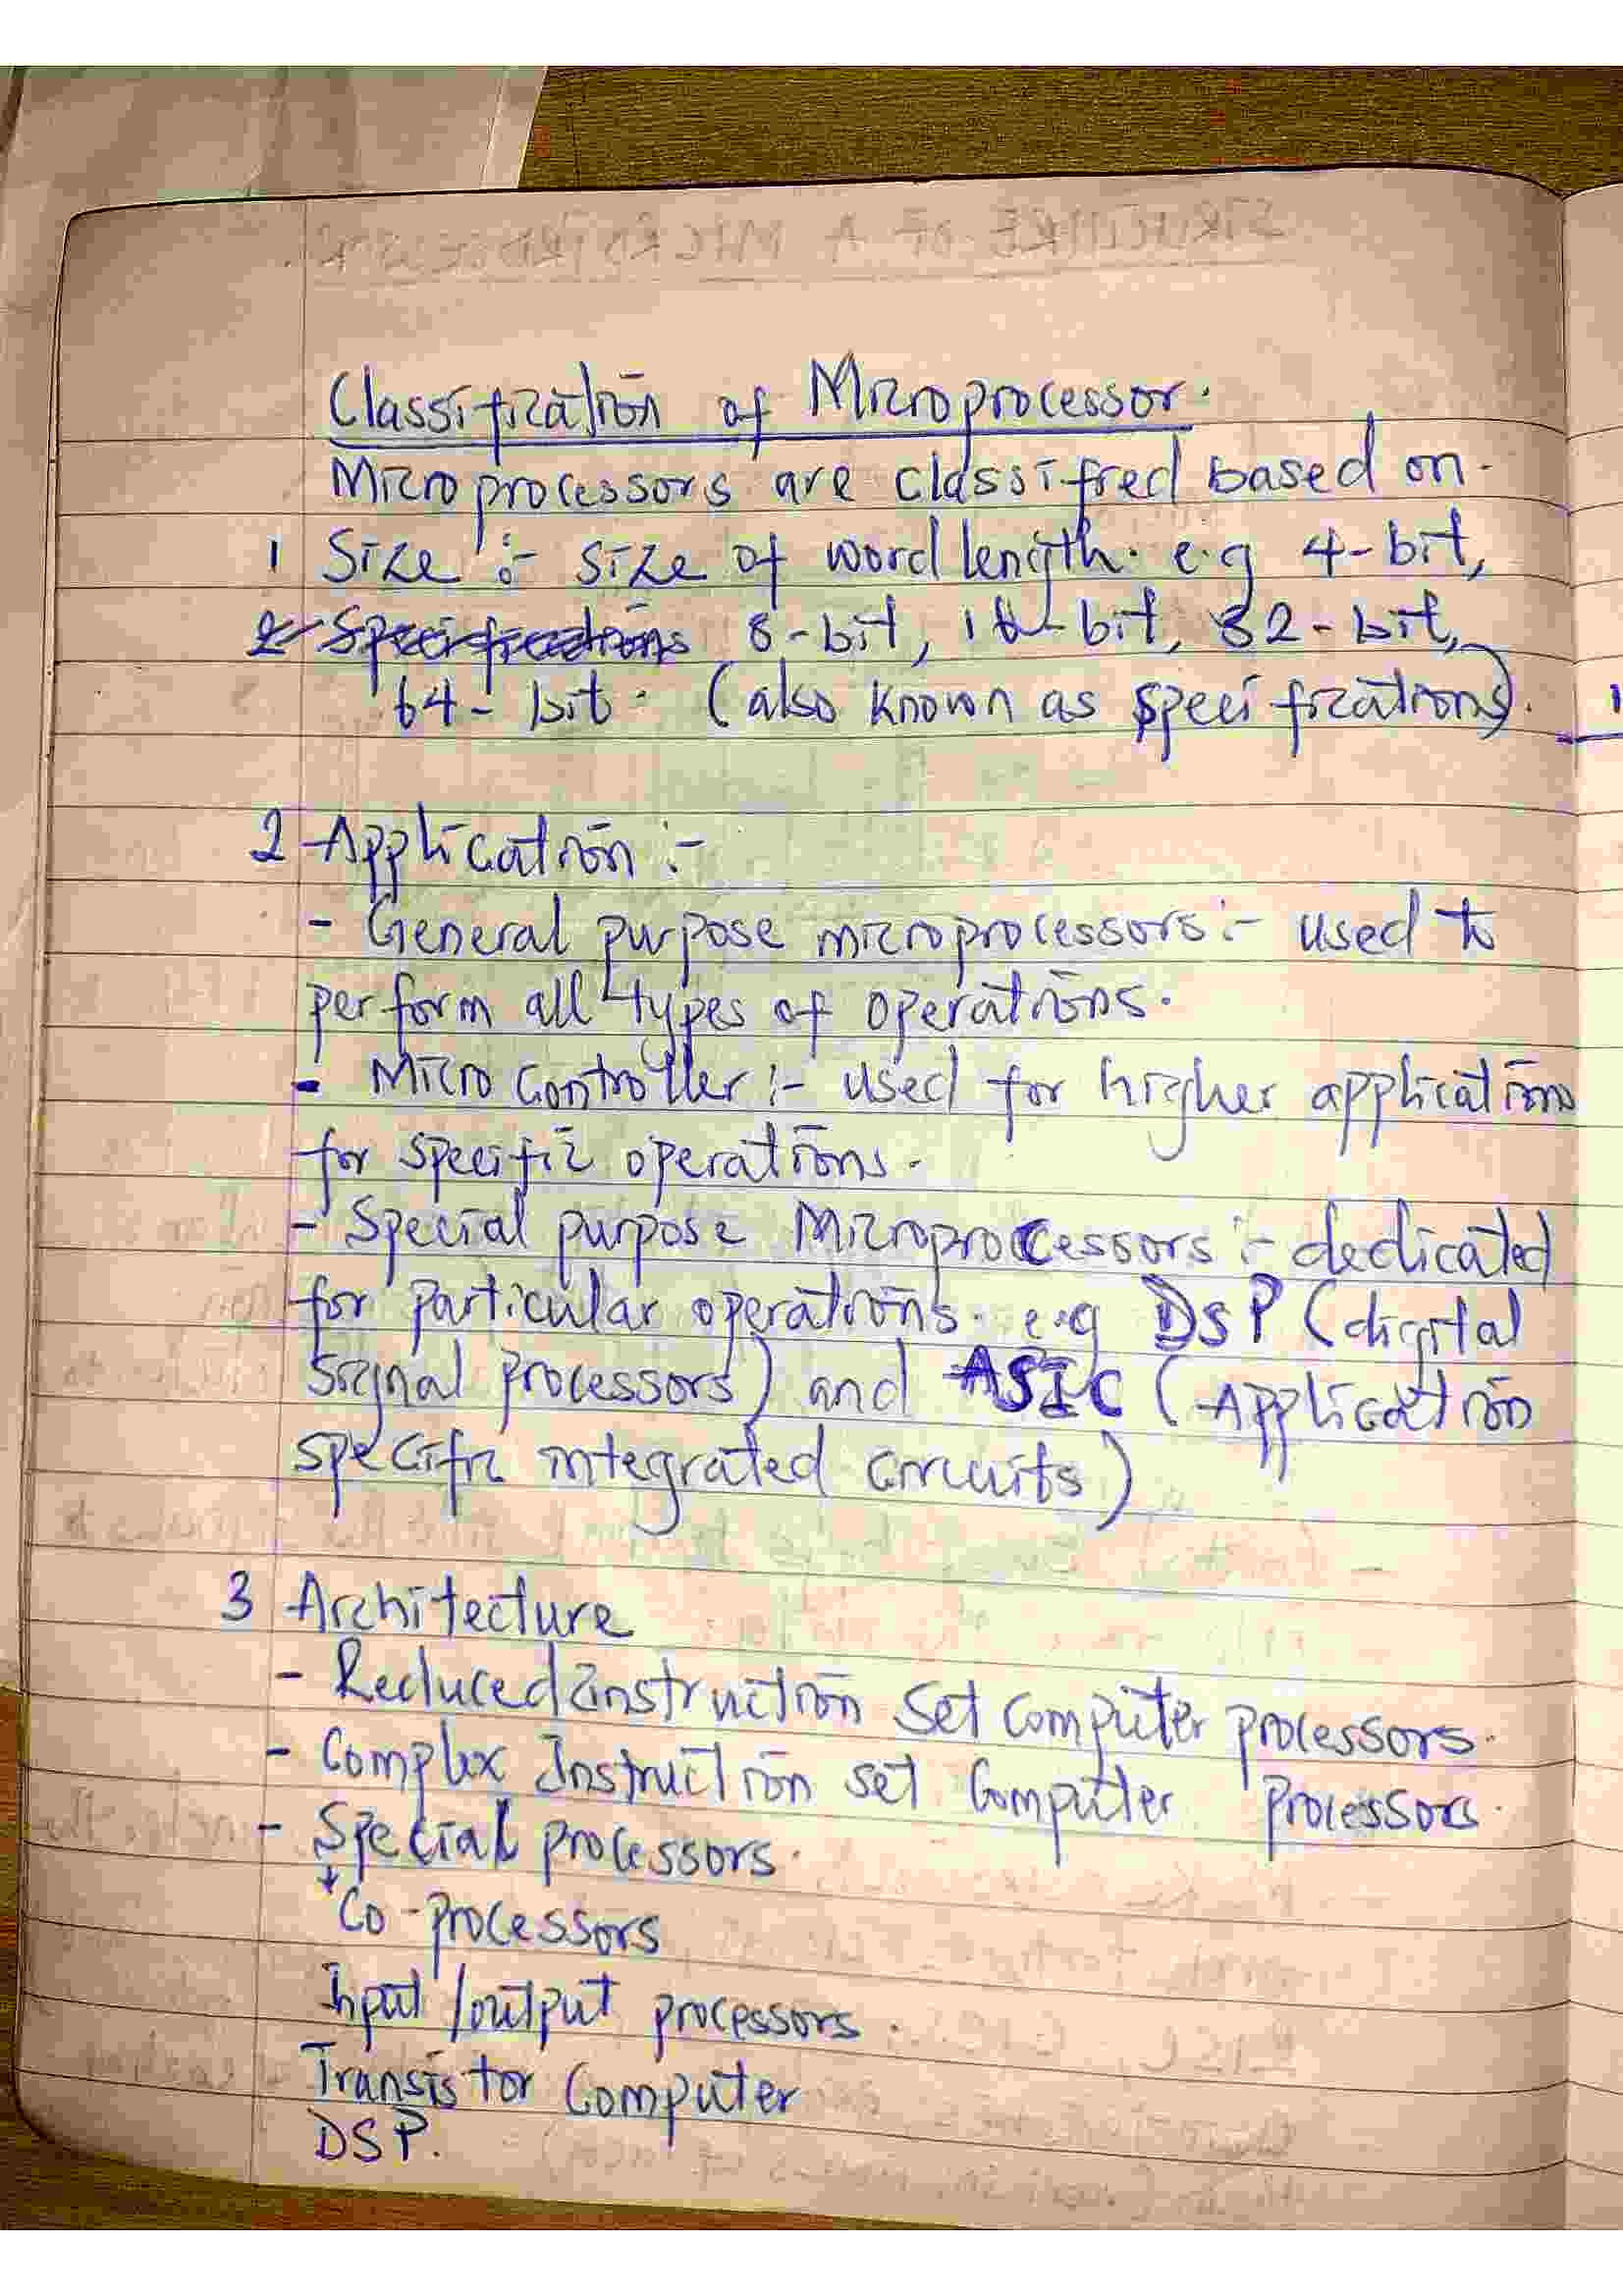 Classification of Microprocessor.
Microprocessors are classified based on.
1 Size :- size of word length. e.g 4-bit,
2 Specifications 8-bit, 16-bit, 32-bit,
64-bit. (also known as specifications).
2 Application :-
- General purpose microprocessors :- used to
perform all types of operations.
- Micro controller :- used for higher application
for specific operations.
- Special purpose Microprocessors :- dedicated
for particular operations. e.g DSP (digital
signal processors) and ASIC (Application
specific integrated circuits)
3 Architecture
- Reduced instruction set computer processors.
- Complex Instruction set Computer processors.
- Special processors.
Co-processors
Input/output processors.
Transistor Computer
DSP.